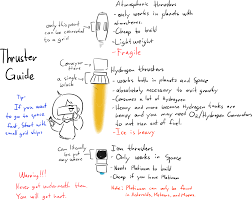 Thruster
Guide
Tip:
If you want
to go to space
fast, Start with
small grid ships
Warning!!!
Never get underneath them
You will get hurt
only this point
can be connected
to a grid
Conveyor
there
a single
block
Can literally
be put any
where
Atmospheric thrusters
- only works in planets with
atmospheres.
- Cheap to build
- Lightweight
- Fragile
Hydrogen thrusters
- works both in planets and space
- absolutely necessary to exit gravity
- Consumes a lot of Hydrogen
- Heavy and more because Hydrogen tanks are
heavy and you may need O2/Hydrogen Generators
to not run out of fuel.
- Ice is heavy.
Ion thrusters
- Only works in Space
- Needs Platinum to build
- Cheap if you have Platinum
Note: Platinum can only be found
in Asteroids, Moons, and